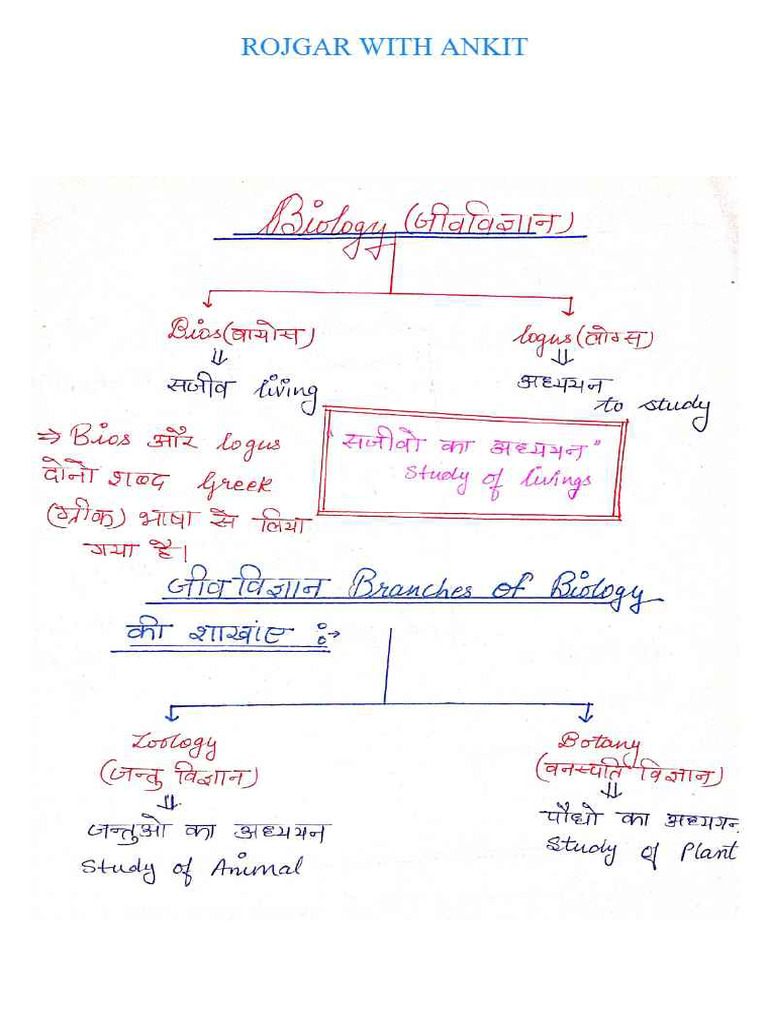 ROJGAR WITH ANKIT
Biology (जीवविज्ञान)
Bios (बायोस)
⇓
सजीव living
logus (लोगस)
⇓
अध्ययन
to study
⇒ Bios और logus
दोनो शब्द Greek
(ग्रीक) भाषा से लिया
गया है।
"सजीवो का अध्ययन"
Study of livings
जीवविज्ञान Branches of Biology
की शाखांए :→
Zoology
(जन्तु विज्ञान)
⇓
जन्तुओ का अध्ययन
Study of Animal
Botany
(वनस्पति विज्ञान)
⇓
पौधो का अध्ययन
Study of Plant